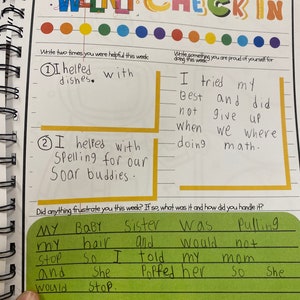 CHECK IN
Write two times you were helpful this week
Write something you are proud of yourself for
doing this week
① I helped with
dishes.
I tried my
Best and did
not give up
when we where
doing math.
② I helped with
Spelling for our
Soar buddies.
Did anything frustrate you this week? If so, what was it and how did you handle it?
My BaBY sister was Pulling
my hair and would not
stop so I told my mom
and she PoPPed her so she
would stop.